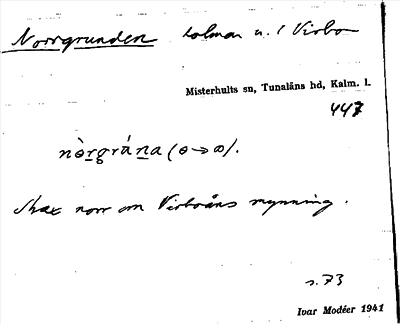 Norrgrunden holmar u. / Virbo
Misterhults sn, Tunaläns hd, Kalm. l.
447
nòrgrána (ɵ→ɷ).
Strax norr om Virboåns mynning.
s. 73
Ivar Modéer 1941